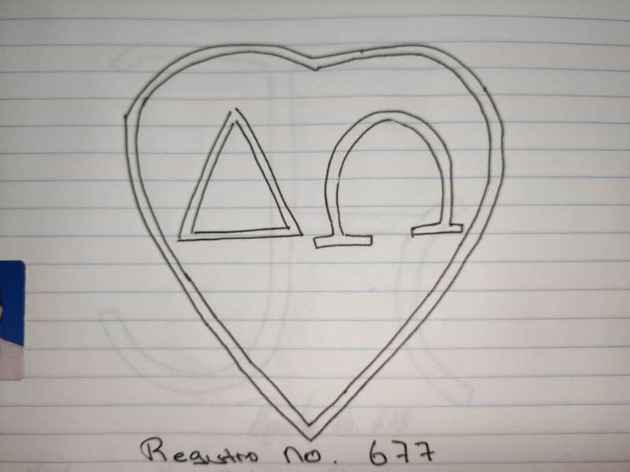 ΔΩ
Registro no. 677